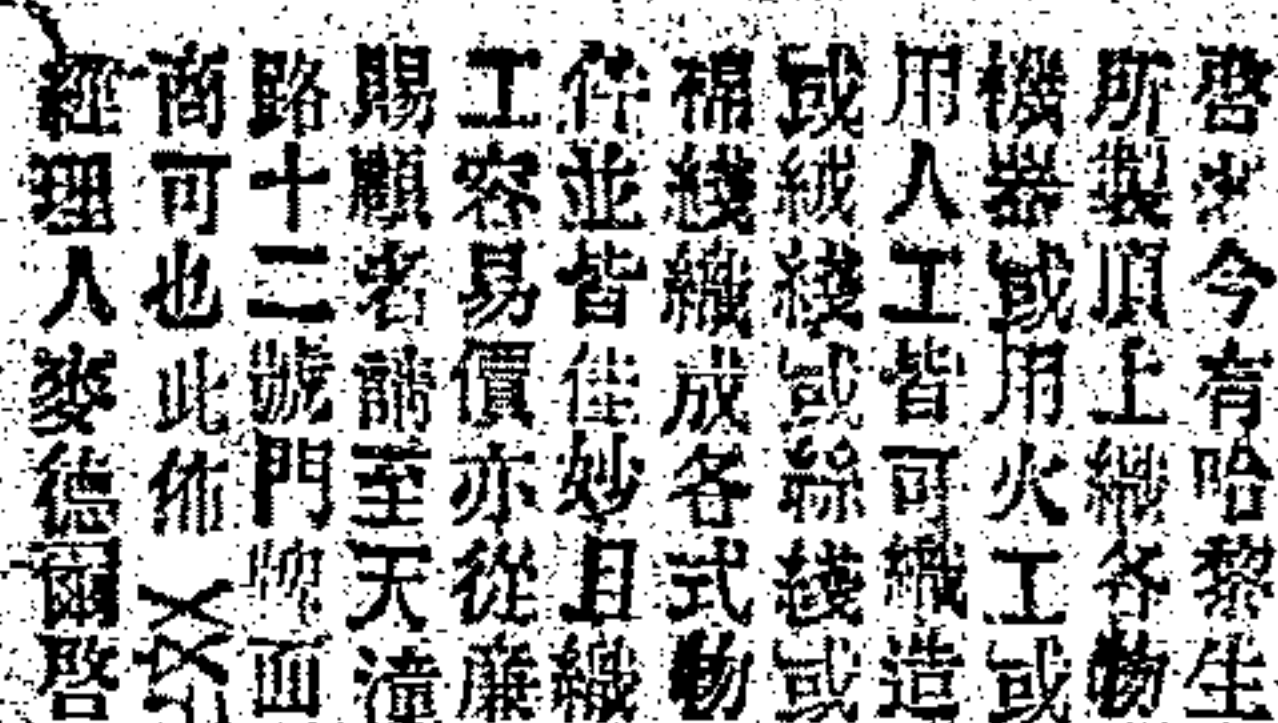 啓者今有哈黎生
所製頂上織各物
機器或用火工或
用人工皆可織造
或絨綫或絲綫或
棉綫織成各式物
件並皆佳妙且織
工容易價亦從廉
賜顧者請至天潼
路十二號門牌面
商可也此佈
經理人麥德爾啓